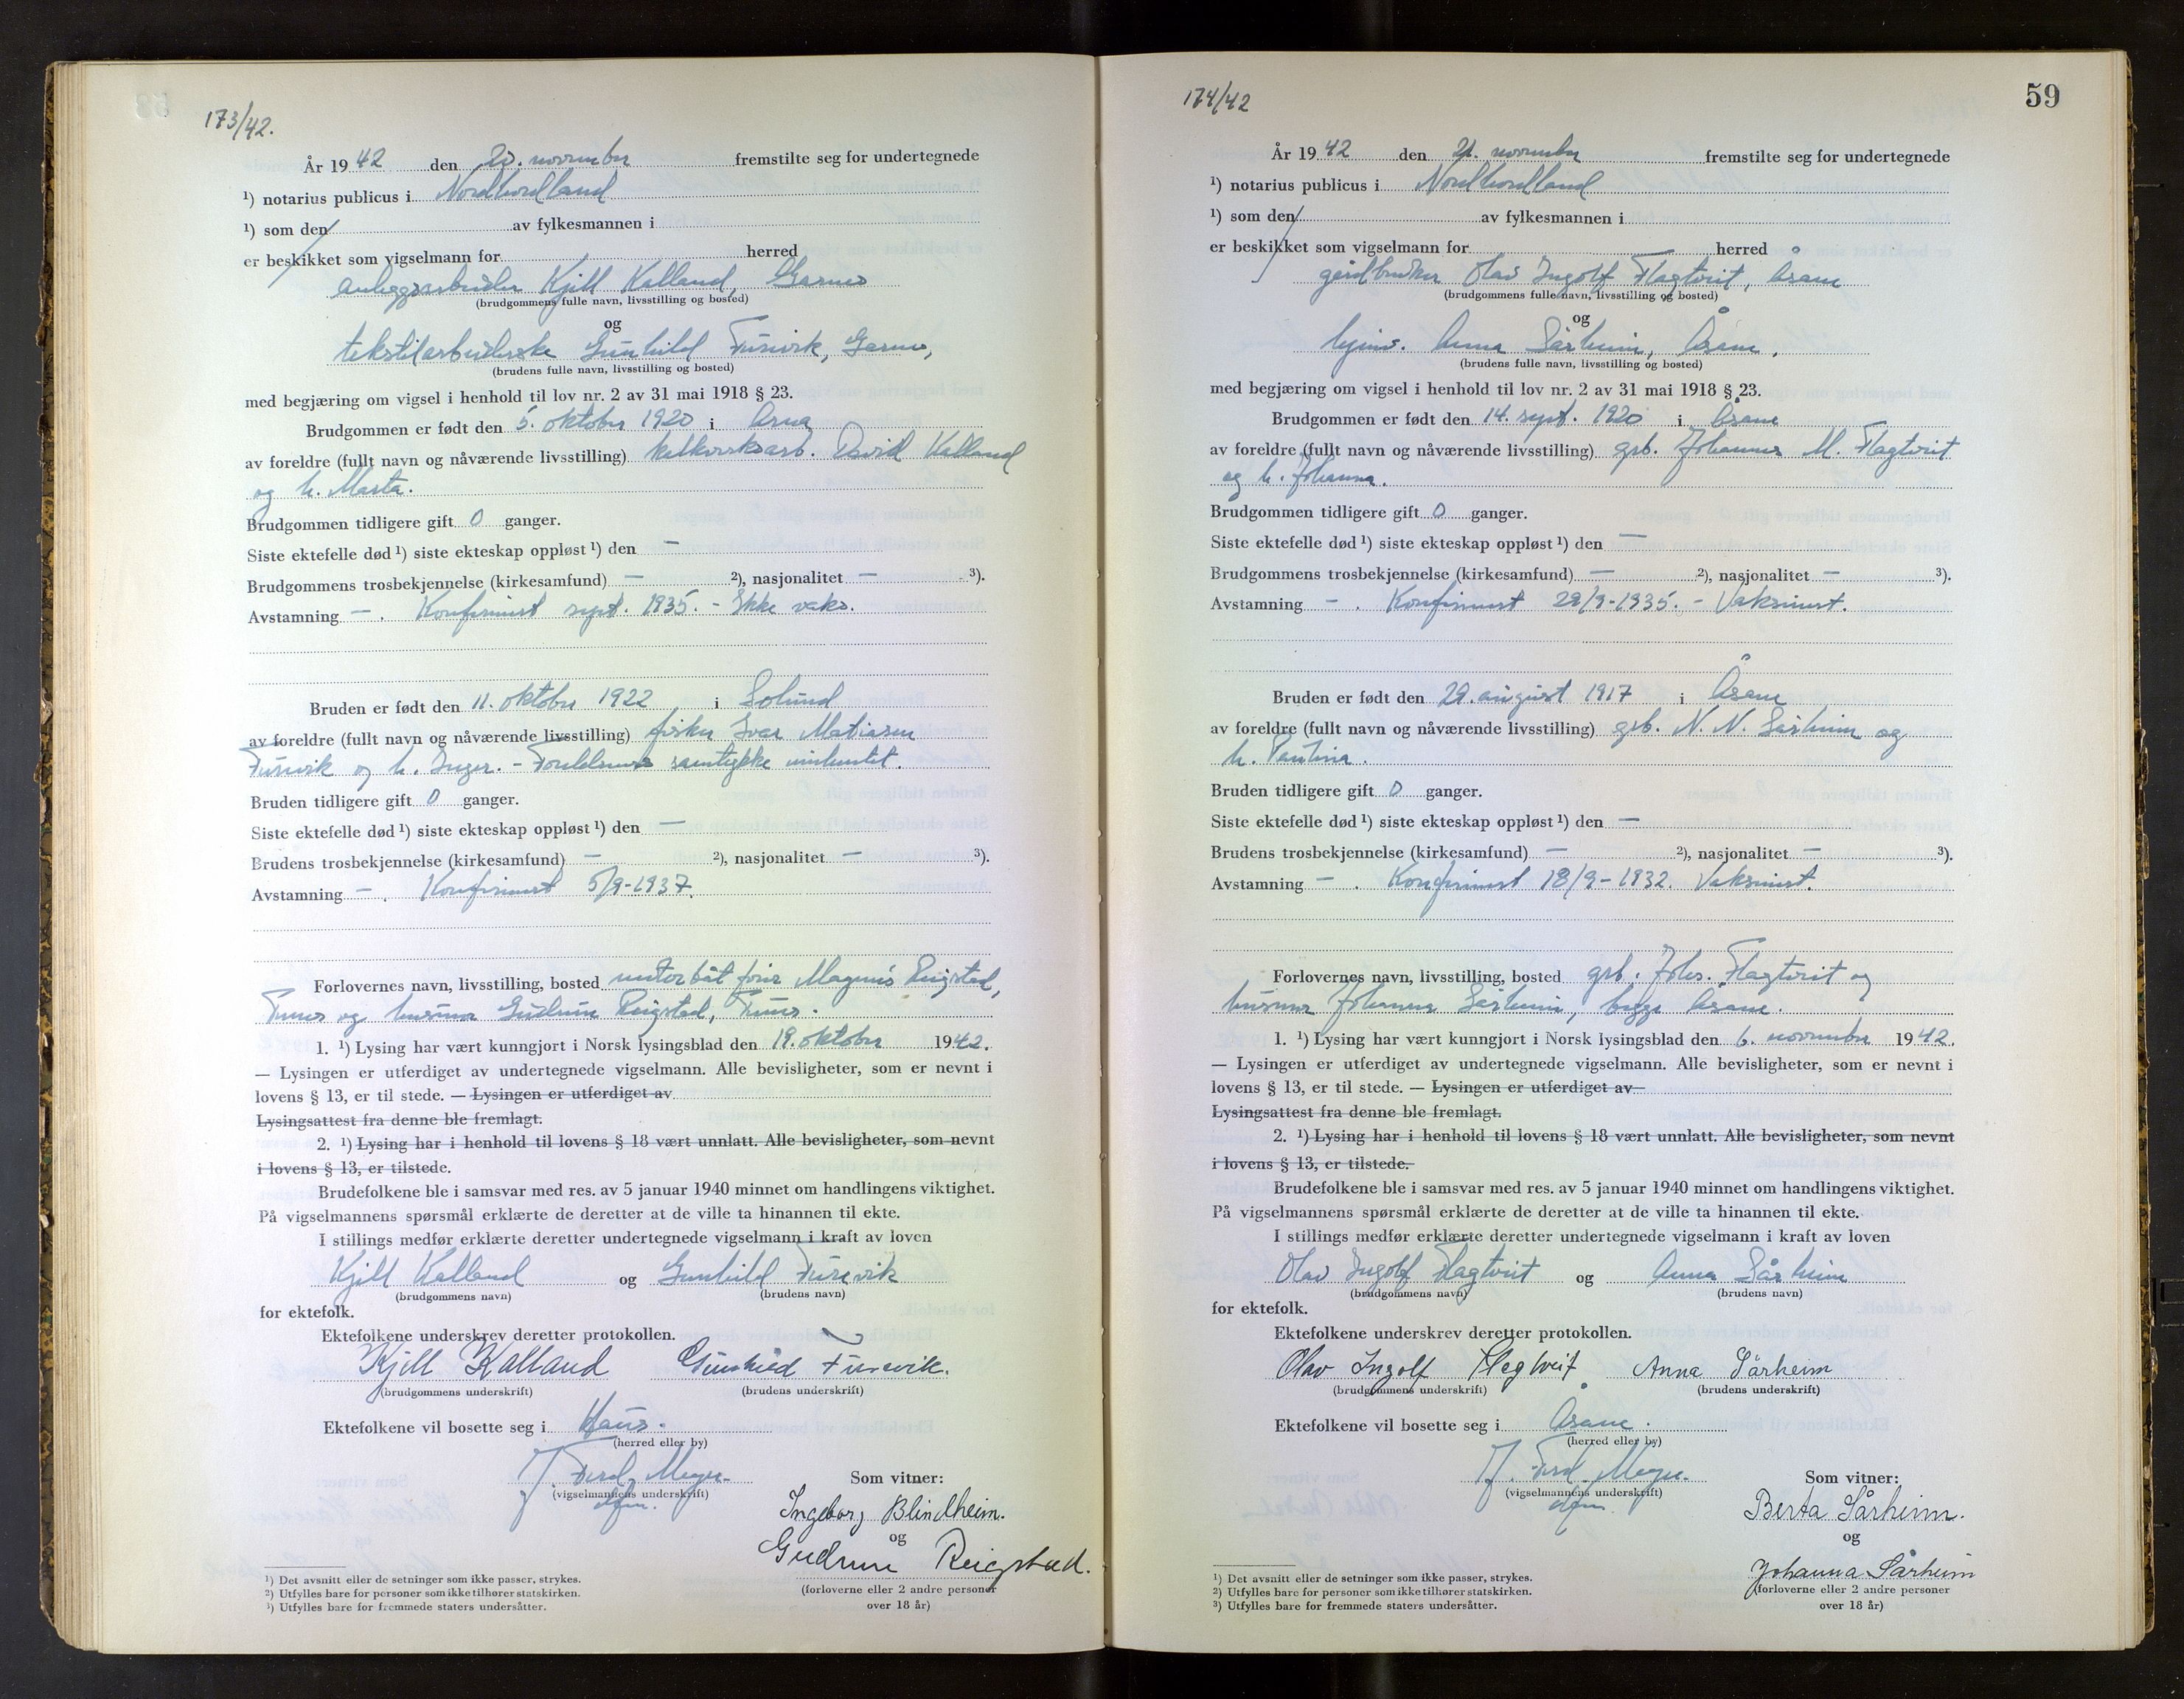 173/42.
År 1942 den 20. november fremstilte seg for undertegnede
¹) notarius publicus i Nordhordland
¹) som den av fylkesmannen i
er beskikket som vigselmann for herred
anleggsarbeider Kjell Kalland, Garnes
(brudgommens fulle navn, livsstilling og bosted)
og
tekstilarbeiderske Gunhild Furevik, Garnes,
(brudens fulle navn, livsstilling og bosted)
med begjæring om vigsel i henhold til lov nr. 2 av 31 mai 1918 § 23.
Brudgommen er født den 5. oktober 1920 i Arna
av foreldre (fullt navn og nåværende livsstilling) kalkverksarb. David Kalland
og h. Marta.
Brudgommen tidligere gift 0 ganger.
Siste ektefelle død ¹) siste ekteskap oppløst ¹) den —
Brudgommens trosbekjennelse (kirkesamfund) — ²), nasjonalitet — ³).
Avstamning — . Konfirmert sept. 1935. - Ikke vaks.
Bruden er født den 11. oktober 1922 i Solund
av foreldre (fullt navn og nåværende livsstilling) fisker Ivar Matiasen
Furevik og h. Inger. - Foreldrenes samtykke innhentet.
Bruden tidligere gift 0 ganger.
Siste ektefelle død ¹) siste ekteskap oppløst ¹) den —
Brudens trosbekjennelse (kirkesamfund) — ²), nasjonalitet — ³).
Avstamning — . Konfirmert 5/9-1937.
Forlovernes navn, livsstilling, bosted motorbåt fører Magnus Reigstad,
Tunes og husmor Gudrun Reigstad, Tunes.
1. ¹) Lysing har vært kunngjort i Norsk lysingsblad den 19. oktober 1942.
— Lysingen er utferdiget av undertegnede vigselmann. Alle bevisligheter, som er nevnt i
lovens § 13, er til stede. — Lysingen er utferdiget av
Lysingsattest fra denne ble fremlagt.
2. ¹) Lysing har i henhold til lovens § 18 vært unnlatt. Alle bevisligheter, som nevnt
i lovens § 13, er tilstede.
Brudefolkene ble i samsvar med res. av 5 januar 1940 minnet om handlingens viktighet.
På vigselmannens spørsmål erklærte de deretter at de ville ta hinannen til ekte.
I stillings medfør erklærte deretter undertegnede vigselmann i kraft av loven
Kjell Kalland og Gunhild Furevik
(brudgommens navn) (brudens navn)
for ektefolk.
Ektefolkene underskrev deretter protokollen.
Kjell Kalland Gunhild Furevik.
(brudgommens underskrift) (brudens underskrift)
Ektefolkene vil bosette seg i Haus.
(herred eller by)
J. Ferd. Meyer
(vigselmannens underskrift)
Som vitner:
Ingeborg Blindheim.
og
Gudrun Reigstad.
(forloverne eller 2 andre personer
over 18 år)
¹) Det avsnitt eller de setninger som ikke passer, strykes.
²) Utfylles bare for personer som ikke tilhører statskirken.
³) Utfylles bare for fremmede staters undersåtter.
174/42
59
År 1942 den 21. november fremstilte seg for undertegnede
¹) notarius publicus i Nordhordland
¹) som den av fylkesmannen i
er beskikket som vigselmann for herred
gårdbruker Olav Ingolf Flagtveit, Åsane
(brudgommens fulle navn, livsstilling og bosted)
og
hjmv. Anna Sårheim, Åsane.
(brudens fulle navn, livsstilling og bosted)
med begjæring om vigsel i henhold til lov nr. 2 av 31 mai 1918 § 23.
Brudgommen er født den 14. sept. 1920 i Åsane
av foreldre (fullt navn og nåværende livsstilling) grb. Johannes M. Flagtveit
og h. Johanna.
Brudgommen tidligere gift 0 ganger.
Siste ektefelle død ¹) siste ekteskap oppløst ¹) den —
Brudgommens trosbekjennelse (kirkesamfund) — ²), nasjonalitet — ³).
Avstamning — . Konfirmert 29/9-1935. - Vaksinert.
Bruden er født den 29. august 1917 i Åsane
av foreldre (fullt navn og nåværende livsstilling) grb. N. N. Sårheim og
h. Paulina.
Bruden tidligere gift 0 ganger.
Siste ektefelle død ¹) siste ekteskap oppløst ¹) den —
Brudens trosbekjennelse (kirkesamfund) — ²), nasjonalitet — ³).
Avstamning — . Konfirmert 18/9-1932. Vaksinert.
Forlovernes navn, livsstilling, bosted grb. Johs. Flagtveit og
husmor Johanna Sårheim, begge Åsane.
1. ¹) Lysing har vært kunngjort i Norsk lysingsblad den 6. november 1942.
— Lysingen er utferdiget av undertegnede vigselmann. Alle bevisligheter, som er nevnt i
lovens § 13, er til stede. — Lysingen er utferdiget av
Lysingsattest fra denne ble fremlagt.
2. ¹) Lysing har i henhold til lovens § 18 vært unnlatt. Alle bevisligheter, som nevnt
i lovens § 13, er tilstede.
Brudefolkene ble i samsvar med res. av 5 januar 1940 minnet om handlingens viktighet.
På vigselmannens spørsmål erklærte de deretter at de ville ta hinannen til ekte.
I stillings medfør erklærte deretter undertegnede vigselmann i kraft av loven
Olav Ingolf Flagtveit og Anna Sårheim
(brudgommens navn) (brudens navn)
for ektefolk.
Ektefolkene underskrev deretter protokollen.
Olav Ingolf Flegtveit Anna Sårheim
(brudgommens underskrift) (brudens underskrift)
Ektefolkene vil bosette seg i Åsane.
(herred eller by)
J. Ferd. Meyer
(vigselmannens underskrift)
Som vitner:
Berta Sårheim.
og
Johanna Sårheim
(forloverne eller 2 andre personer
over 18 år)
¹) Det avsnitt eller de setninger som ikke passer, strykes.
²) Utfylles bare for personer som ikke tilhører statskirken.
³) Utfylles bare for fremmede staters undersåtter.